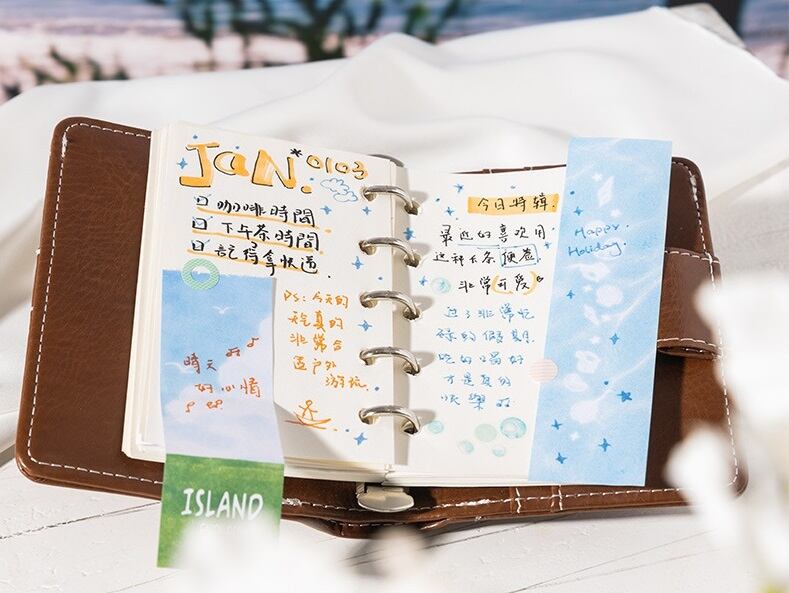 JaN.*0103
咖啡時間
下午茶時間
記得拿快遞.
PS:今天的
天气真的
非常合
適户外
游玩.
晴天
好心情
ISLAND
今日特辑.
最近的喜欢用
这种长条便签
非常可爱
过了非常忙
碌的假期.
吃好喝好
才是真的
快樂
Happy
Holiday.